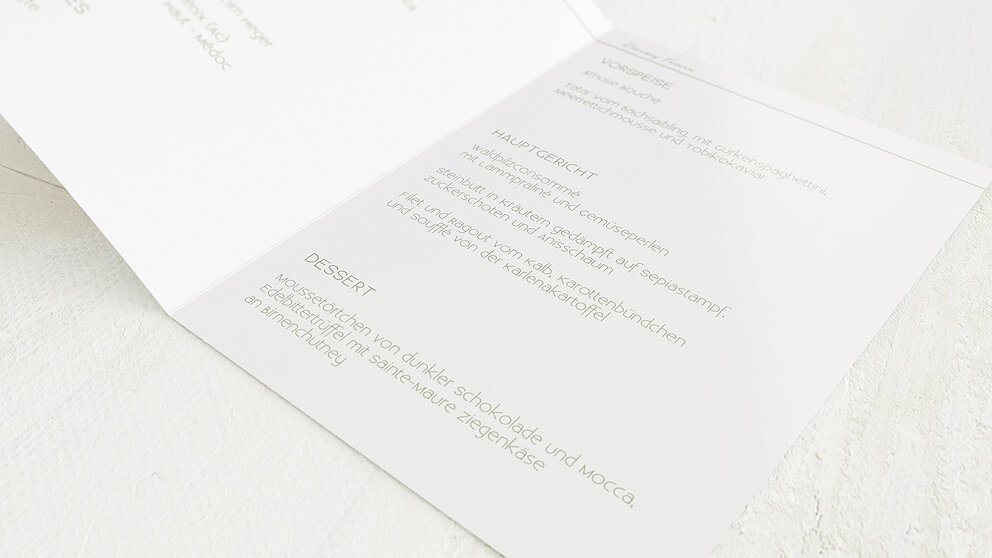 ES
Heger
(AC)
Haut - Médoc
VORSPEISE
Amuse Bouche
Tatar vom Bachsaibling, mit Gurkenspaghettini,
Meerrettichmousse und Tobikokaviar
HAUPTGERICHT
Waldpilzconsommé
mit Lammpraline und Gemüseperlen
Steinbutt in Kräutern gedämpft auf Sepiastampf,
Zuckerschoten und Anisschaum
Filet und Ragout vom Kalb, Karottenbündchen
und Soufflé von der Karlenakartoffel
DESSERT
Moussetörtchen von dunkler Schokolade und Mocca,
Edelbittertrüffel mit Sainte-Maure Ziegenkäse
an Birnenchutney